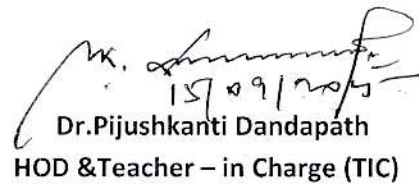 15/09/2025
Dr.Pijushkanti Dandapath
HOD &Teacher – in Charge (TIC)